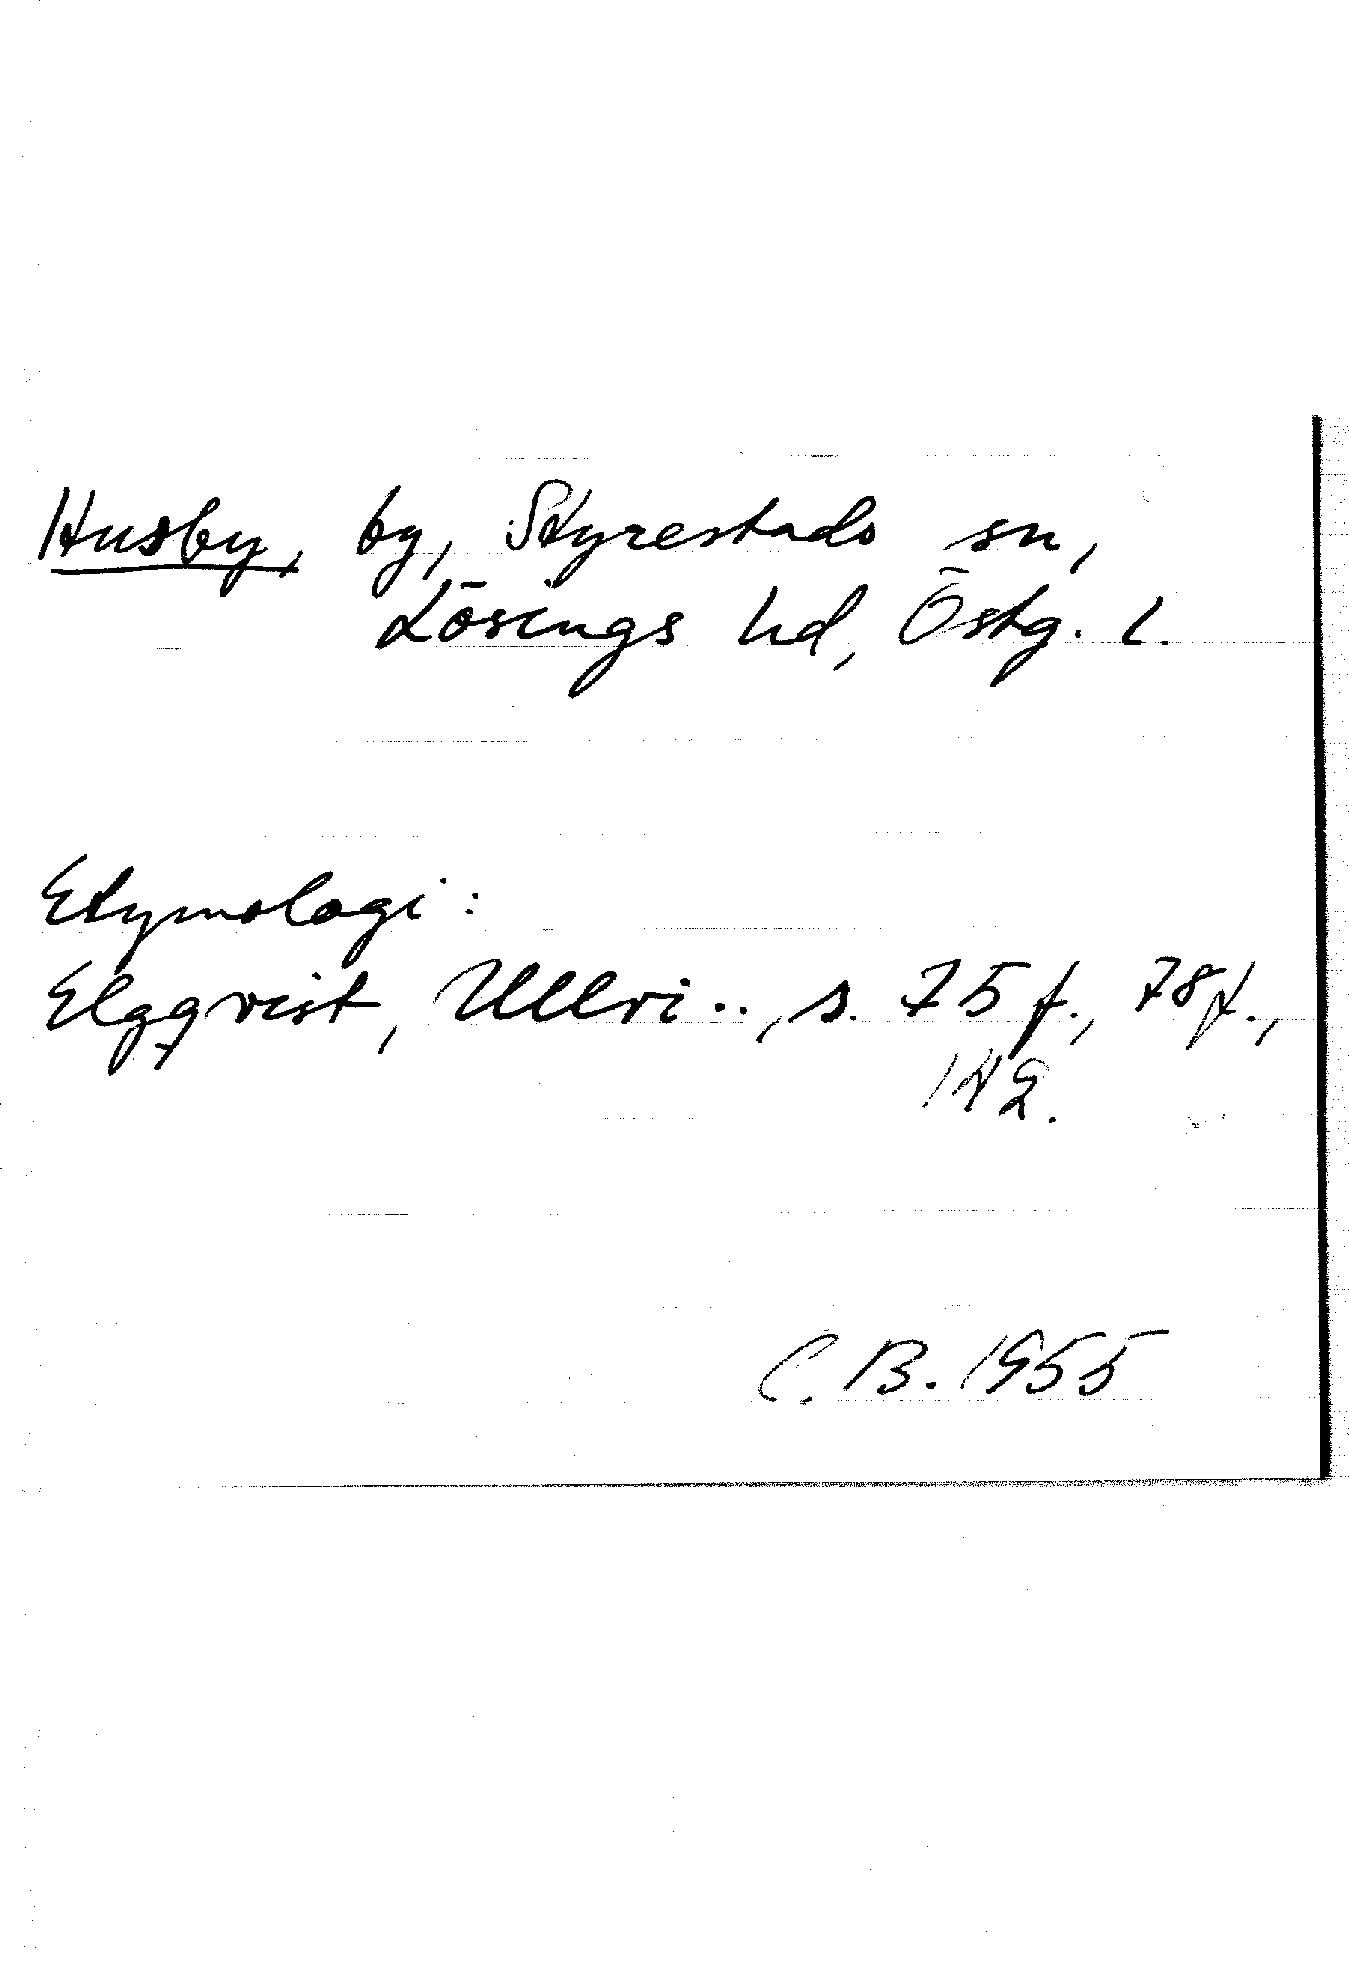 Husby, by, Styrestads sn,
Lösings hd, Östg. l.
Etymologi:
Elgqvist, Ullvi.., s. 75 f., 78 f.,
142.
C. B. 1955